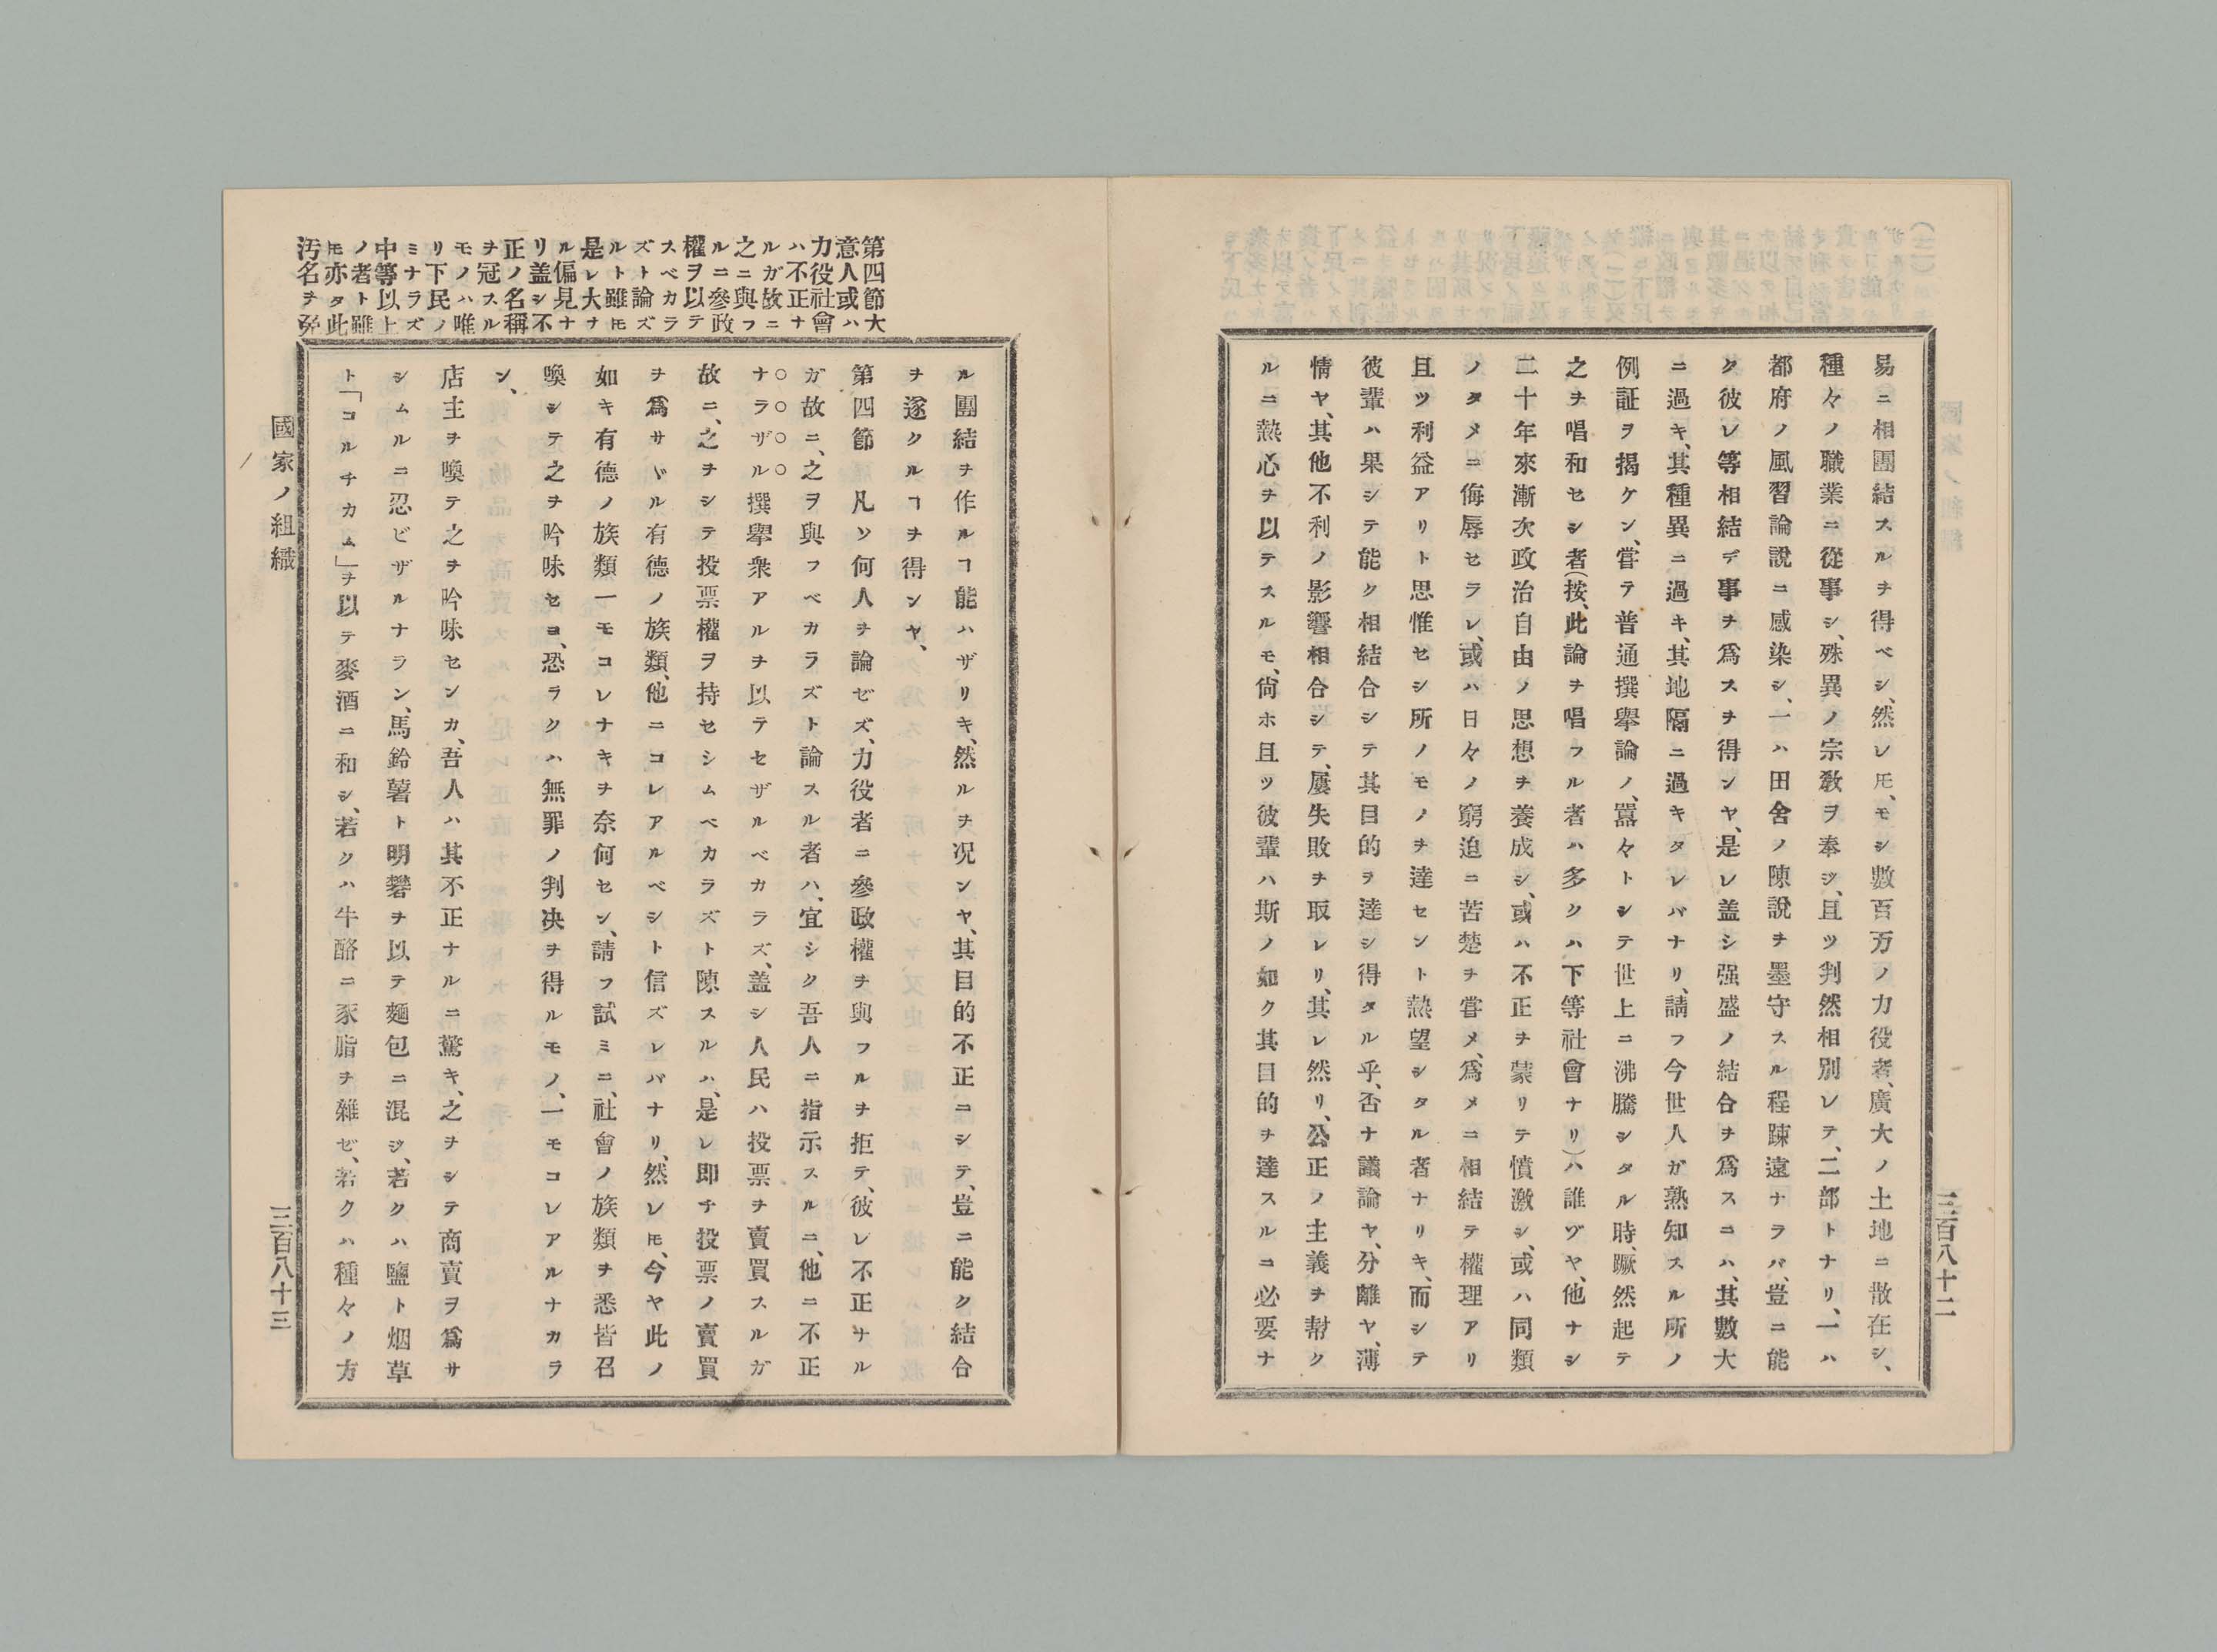 易ニ相團結スルヲ得ベシ、然レ𪜈、モシ數百万ノ力役者、廣大ノ土地ニ散在シ、
種々ノ職業ニ從事シ、殊異ノ宗敎ヲ奉ジ、且ツ判然相別レテ、二部トナリ、一ハ
都府ノ風習論說ニ感染シ、一ハ田舍ノ陳說ヲ墨守スル程踈遠ナラバ、豈ニ能
ク彼レ等相結デ事ヲ爲スヲ得ンヤ、是レ盖シ强盛ノ結合ヲ爲スニハ、其數大
ニ過キ、其種異ニ過キ、其地隔ニ過キタレバナリ、請フ今世人ガ熟知スル所ノ
例証ヲ揭ケン、嘗テ普通撰擧論ノ、囂々トシテ世上ニ沸騰シタル時、蹶然起テ
之ヲ唱和セシ者(按、此論ヲ唱フル者ハ多クハ下等社會ナリ)ハ誰ゾヤ、他ナシ
二十年來漸次政治自由ノ思想ヲ養成シ、或ハ不正ヲ蒙リテ憤激シ、或ハ同類
ノタメニ侮辱セラレ、或ハ日々ノ窮迫ニ苦楚ヲ甞メ、爲メニ相結テ權理アリ
且ツ利益アリト思惟セシ所ノモノヲ達セント熱望シタル者ナリキ、而シテ
彼輩ハ果シテ能ク相結合シテ其目的ヲ達シ得タル乎、否ナ議論ヤ、分離ヤ、薄
情ヤ、其他不利ノ影響相合シテ、屢失敗ヲ取レリ、其レ然リ、公正ノ主義ヲ幇ク
ルニ熱心ヲ以テスルモ、尙ホ且ツ彼輩ハ斯ノ如ク其目的ヲ達スルニ必要ナ
三百八十二
第四節大
意人或ハ
力役社會
ハ不正ナ
ルガ故ニ
之ニ與フ
ルニ參政
權ヲ以テ
スベカラ
ズト論ズ
ルト雖𪜈
是レ大ナ
ル偏見ナ
リ盖シ不
正ノ名稱
ヲ冠スル
モノハ唯
リ下民ノ
ミナラズ
中等以上
ノ者ト雖
𪜈亦タ此
汚名ヲ免
ル團結ヲ作ルヿ能ハザリキ、然ルヲ况ンヤ、其目的不正ニシテ、豈ニ能ク結合
ヲ遂クルヿヲ得ンヤ、
第四節 凡ソ何人ヲ論ゼズ、力役者ニ參政權ヲ與フルヲ拒テ、彼レ不正ナル
ガ故ニ、之ヲ與フベカラズト論スル者ハ、宜シク吾人ニ指示スルニ、他ニ不正
ナラザル撰擧衆アルヲ以テセザルベカラズ、盖シ人民ハ投票ヲ賣買スルガ
故ニ、之ヲシテ投票權ヲ持セシムベカラズト陳スルハ、是レ即チ投票ノ賣買
ヲ爲サヾル有德ノ族類、他ニコレアルベシト信ズレバナリ、然レ𪜈、今ヤ此ノ
如キ有德ノ族類一モコレナキヲ奈何セン、請フ試ミニ、社會ノ族類ヲ悉皆召
喚シテ之ヲ吟味セヨ、恐ラクハ無罪ノ判决ヲ得ルモノ、一モコレアルナカラ
ン、
店主ヲ喚テ之ヲ吟味センカ、吾人ハ其不正ナルニ驚キ、之ヲシテ商賣ヲ爲サ
シムルニ忍ビザルナラン、馬鈴薯ト明礬ヲ以テ麵包ニ混ジ、若クハ鹽ト烟草
ト「コルチカム」ヲ以テ麥酒ニ和シ、若クハ牛酪ニ豕脂ヲ雜ゼ、若クハ種々ノ方
國家ノ組織
三百八十三